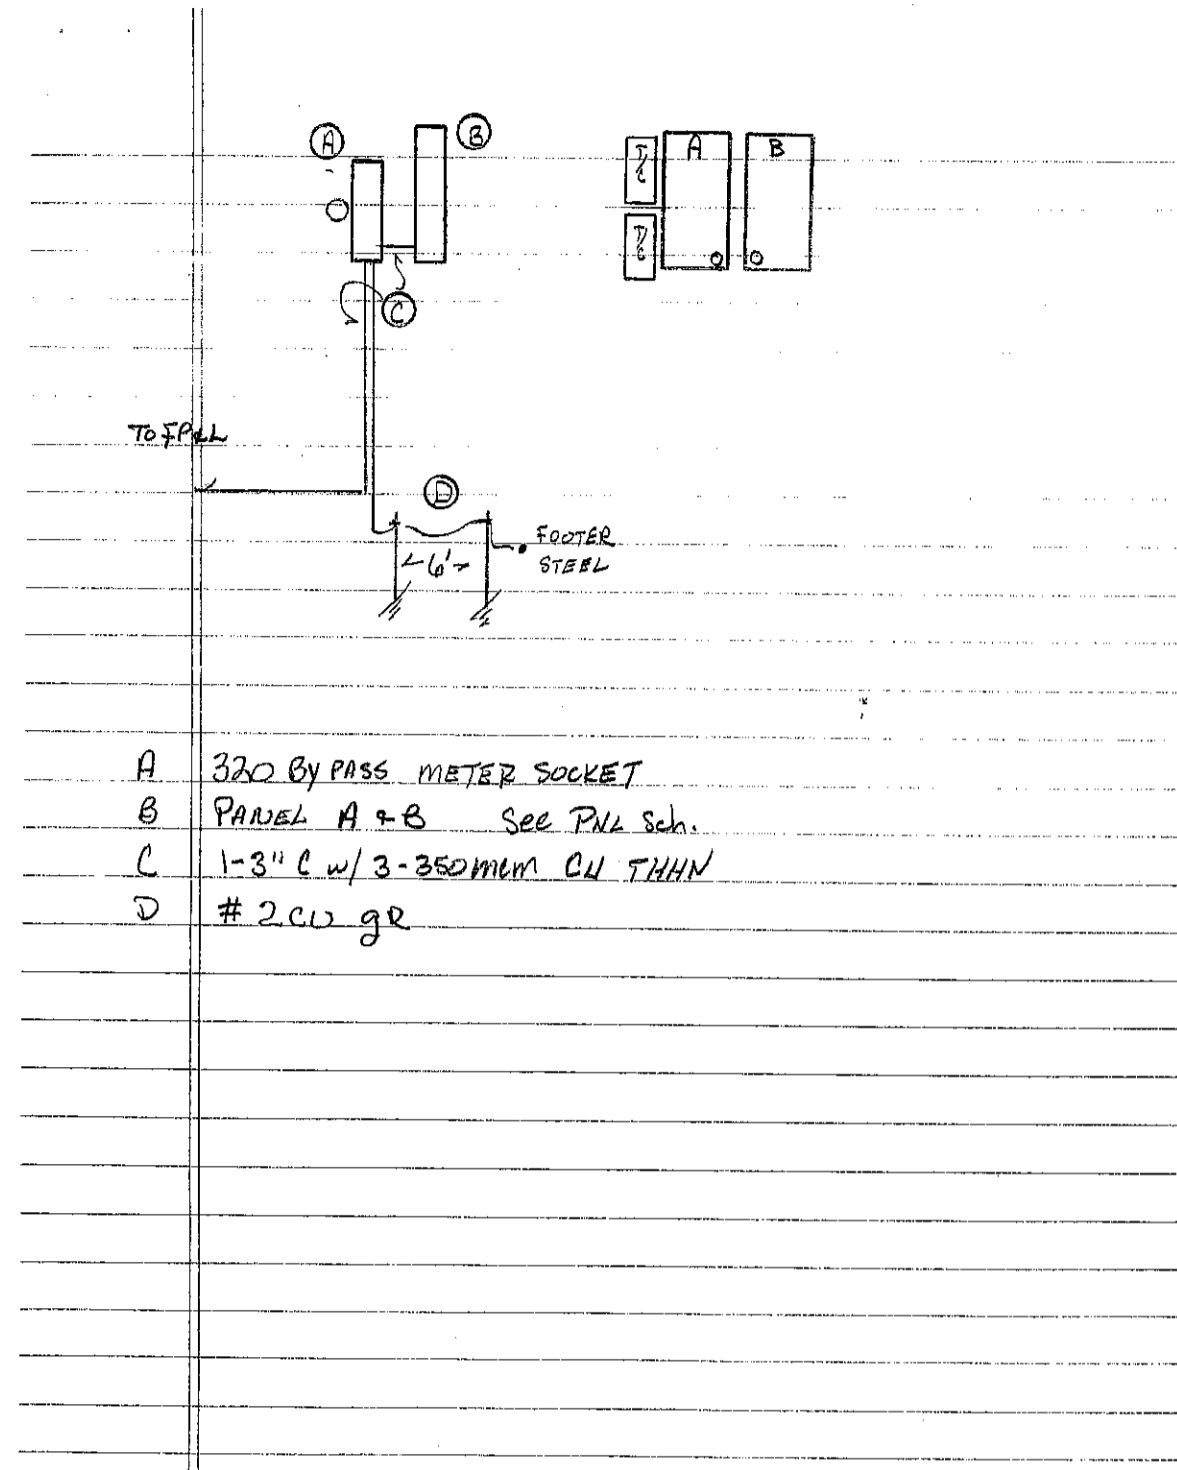 A B
A B
T/C
T/C
C
TO FP&L
D
FOOTER
6' STEEL
A 320 BY PASS METER SOCKET
B PANEL A & B See PNL Sch.
C 1-3" C w/ 3-350 mcm CU THHN
D # 2 CU gR